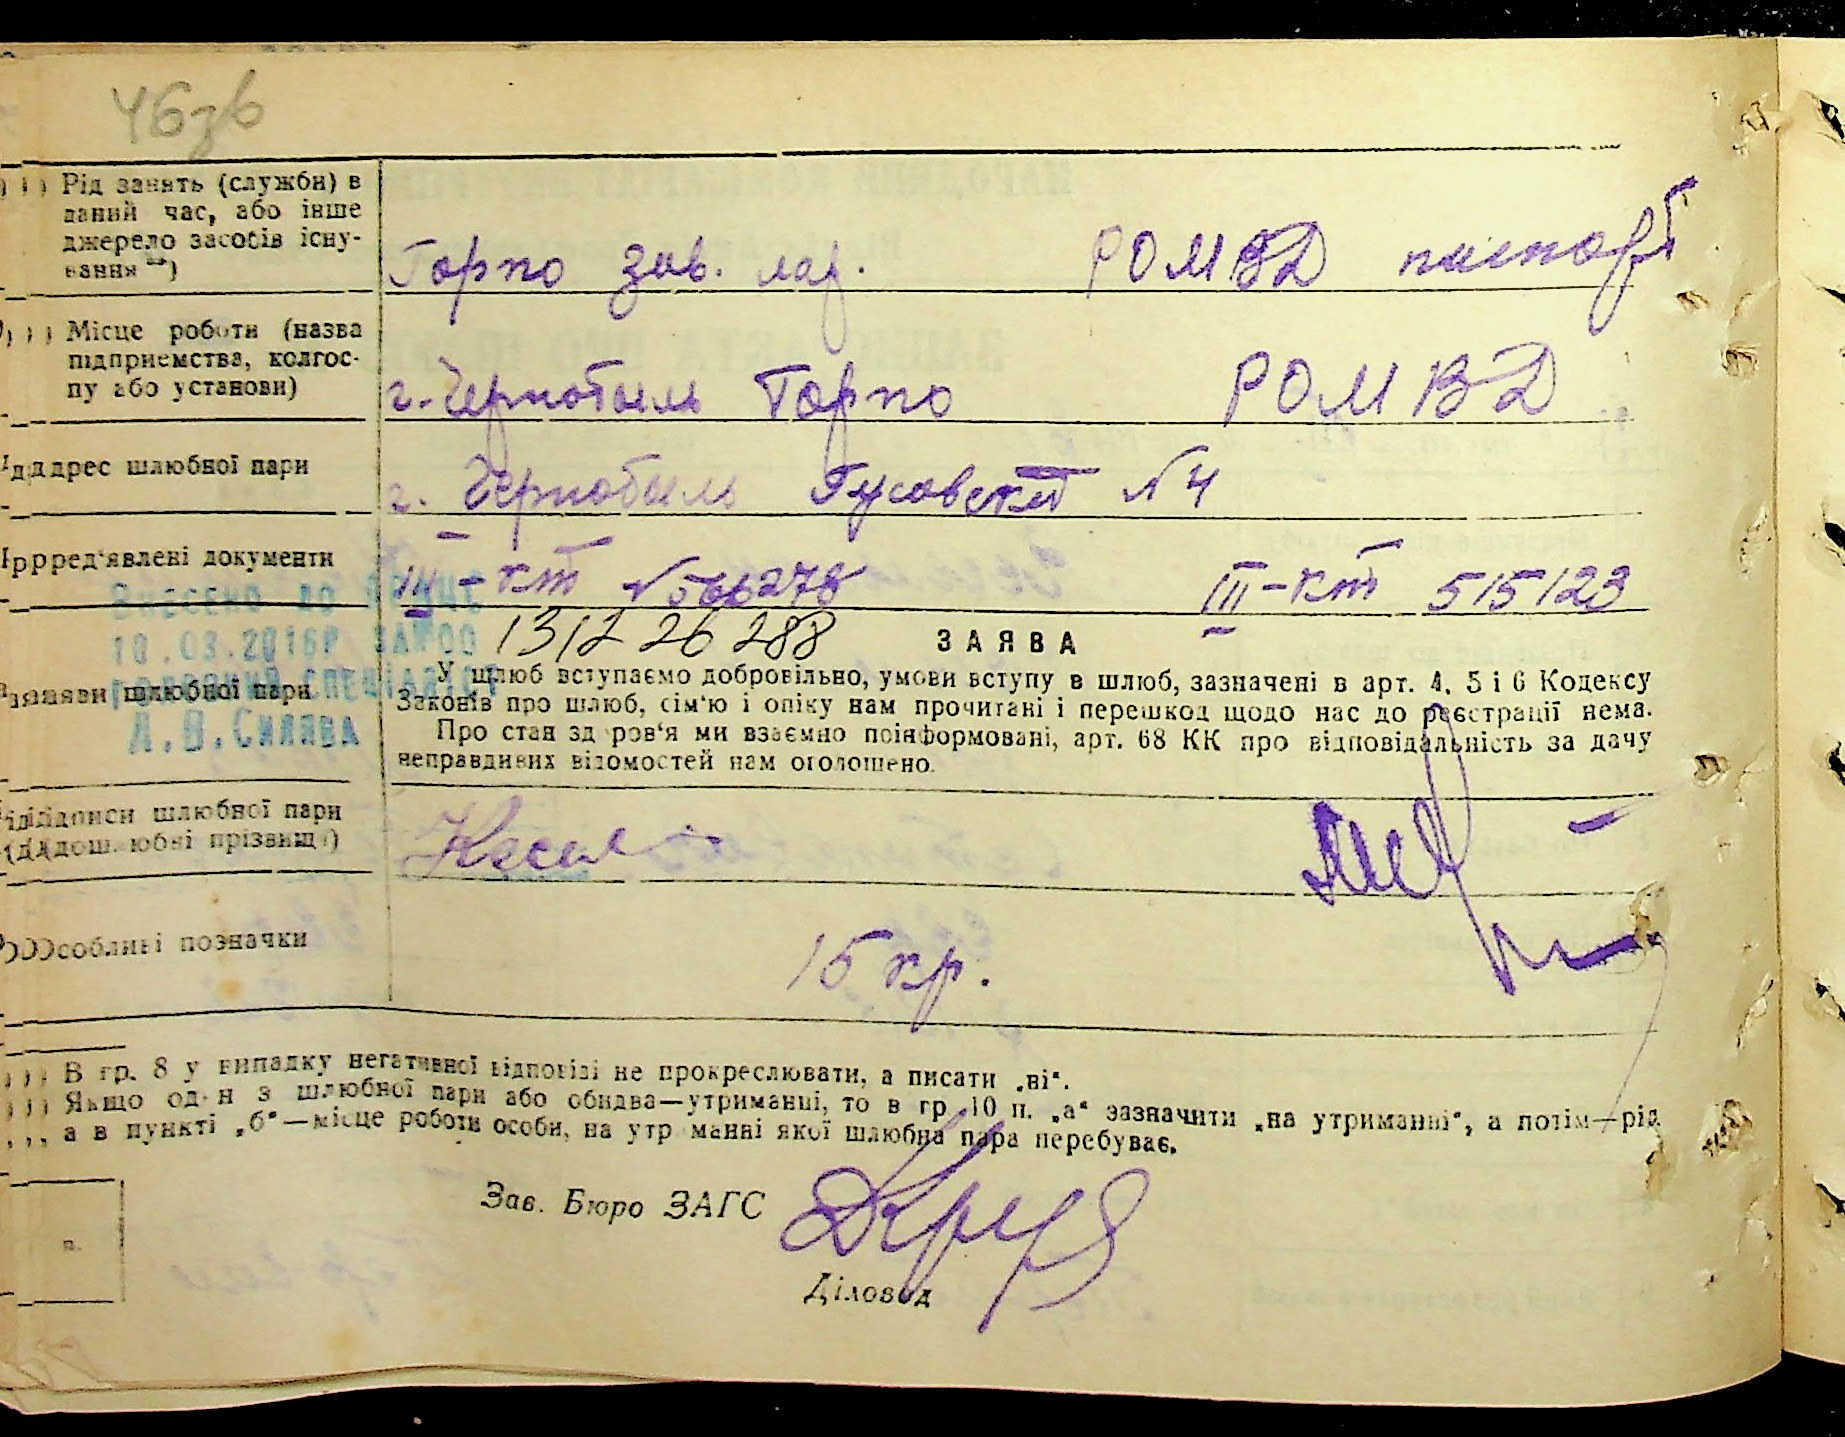 46зв
Рід занять (служби) в
даний час, або інше
джерело засобів існу-
вання **)
Горпо зав. лар. РОМВД
Місце роботи (назва
підприємства, колгос-
пу або установи)
г. Чернобыль Горпо РОМВД
Адрес шлюбної пари
г. Чернобыль №4
Пред'явлені документи
III-КТ №566278 III-КТ 515123
Внесено до
10.03.2016р
1312 26 288
ЗАЯВА
Заяви шлюбної пари
У шлюб вступаємо добровільно, умови вступу в шлюб, зазначені в арт. 4, 5 і 6 Кодексу
Законів про шлюб, сім'ю і опіку нам прочитані і перешкод щодо нас до реєстрації нема.
Про стан здоров'я ми взаємно поінформовані, арт. 68 КК про відповідальність за дачу
неправдивих відомостей нам оголошено.
Підписи шлюбної пари
(дошлюбні прізвища)
Особливі позначки
15 кр.
В гр. 8 у випадку негативної відповіді не прокреслювати, а писати „ні“.
Якщо один з шлюбної пари або обидва—утриманці, то в гр. 10 п. „а“ зазначити „на утриманні“, а потім—рід
а в пункті „б“—місце роботи особи, на утриманні якої шлюбна пара перебуває.
Зав. Бюро ЗАГС
Діловод